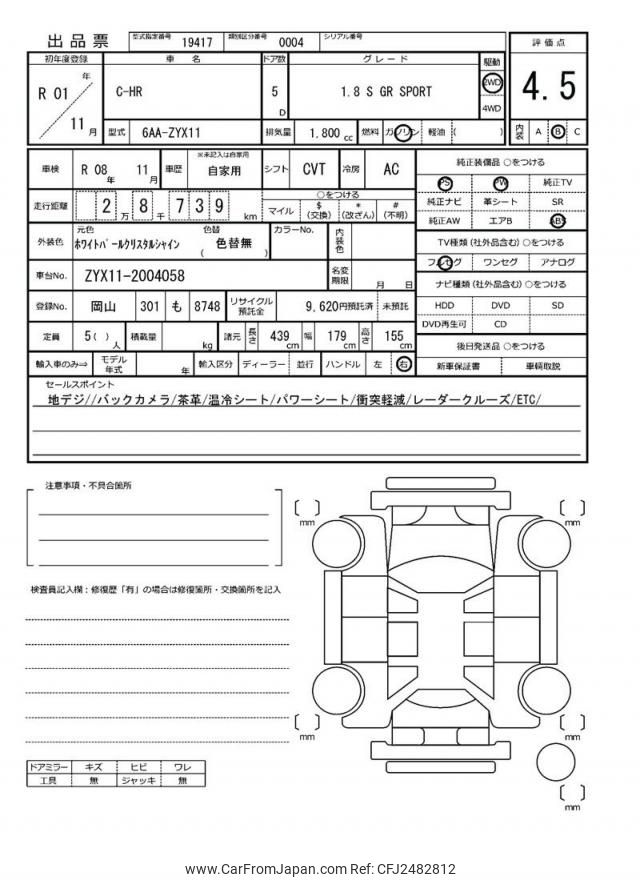 出品票 型式指定番号 19417 類別区分番号 0004 シリアル番号
評価点
4.5
内装 A B C
初年度登録 車名 ドア数 グレード 駆動
R 01 年 11 月 C-HR 5 D 1.8 S GR SPORT 2WD 4WD
型式 6AA-ZYX11 排気量 1.800 cc 燃料 ガソリン 軽油 ( )
車検 R 08 年 11 月 車歴 ※未記入は自家用 自家用 シフト CVT 冷房 AC
走行距離 2 万 8 千 7 3 9 km
○をつける
マイル $(交換) *(改ざん) #(不明)
外装色 元色 ホワイトパールクリスタルシャイン 色替 ( 色替無 ) カラーNo. 内装色
車台No. ZYX11-2004058 名変期限 月 日
登録No. 岡山 301 も 8748 リサイクル預託金 9,620円預託済 未預託
定員 5( ) 人 積載量 kg 諸元 長さ 439 cm 幅 179 cm 高さ 155 cm
輸入車のみ⇒ モデル年式 年 輸入区分 ディーラー 並行 ハンドル 左 右
純正装備品 ○をつける
PS PW 純正TV
純正ナビ 革シート SR
純正AW エアB ABS
TV種類(社外品含む) ○をつける
フルセグ ワンセグ アナログ
ナビ種類(社外品含む) ○をつける
HDD DVD SD
DVD再生可 CD
後日発送品 ○をつける
新車保証書 車輌取説
セールスポイント
地デジ//バックカメラ/茶革/温冷シート/パワーシート/衝突軽減/レーダークルーズ/ETC/
注意事項・不具合箇所
検査員記入欄：修復歴「有」の場合は修復箇所・交換箇所を記入
mm
mm
mm
mm
mm
ドアミラー キズ ヒビ ワレ
工具 無 ジャッキ 無
www.CarFromJapan.com Ref: CFJ2482812